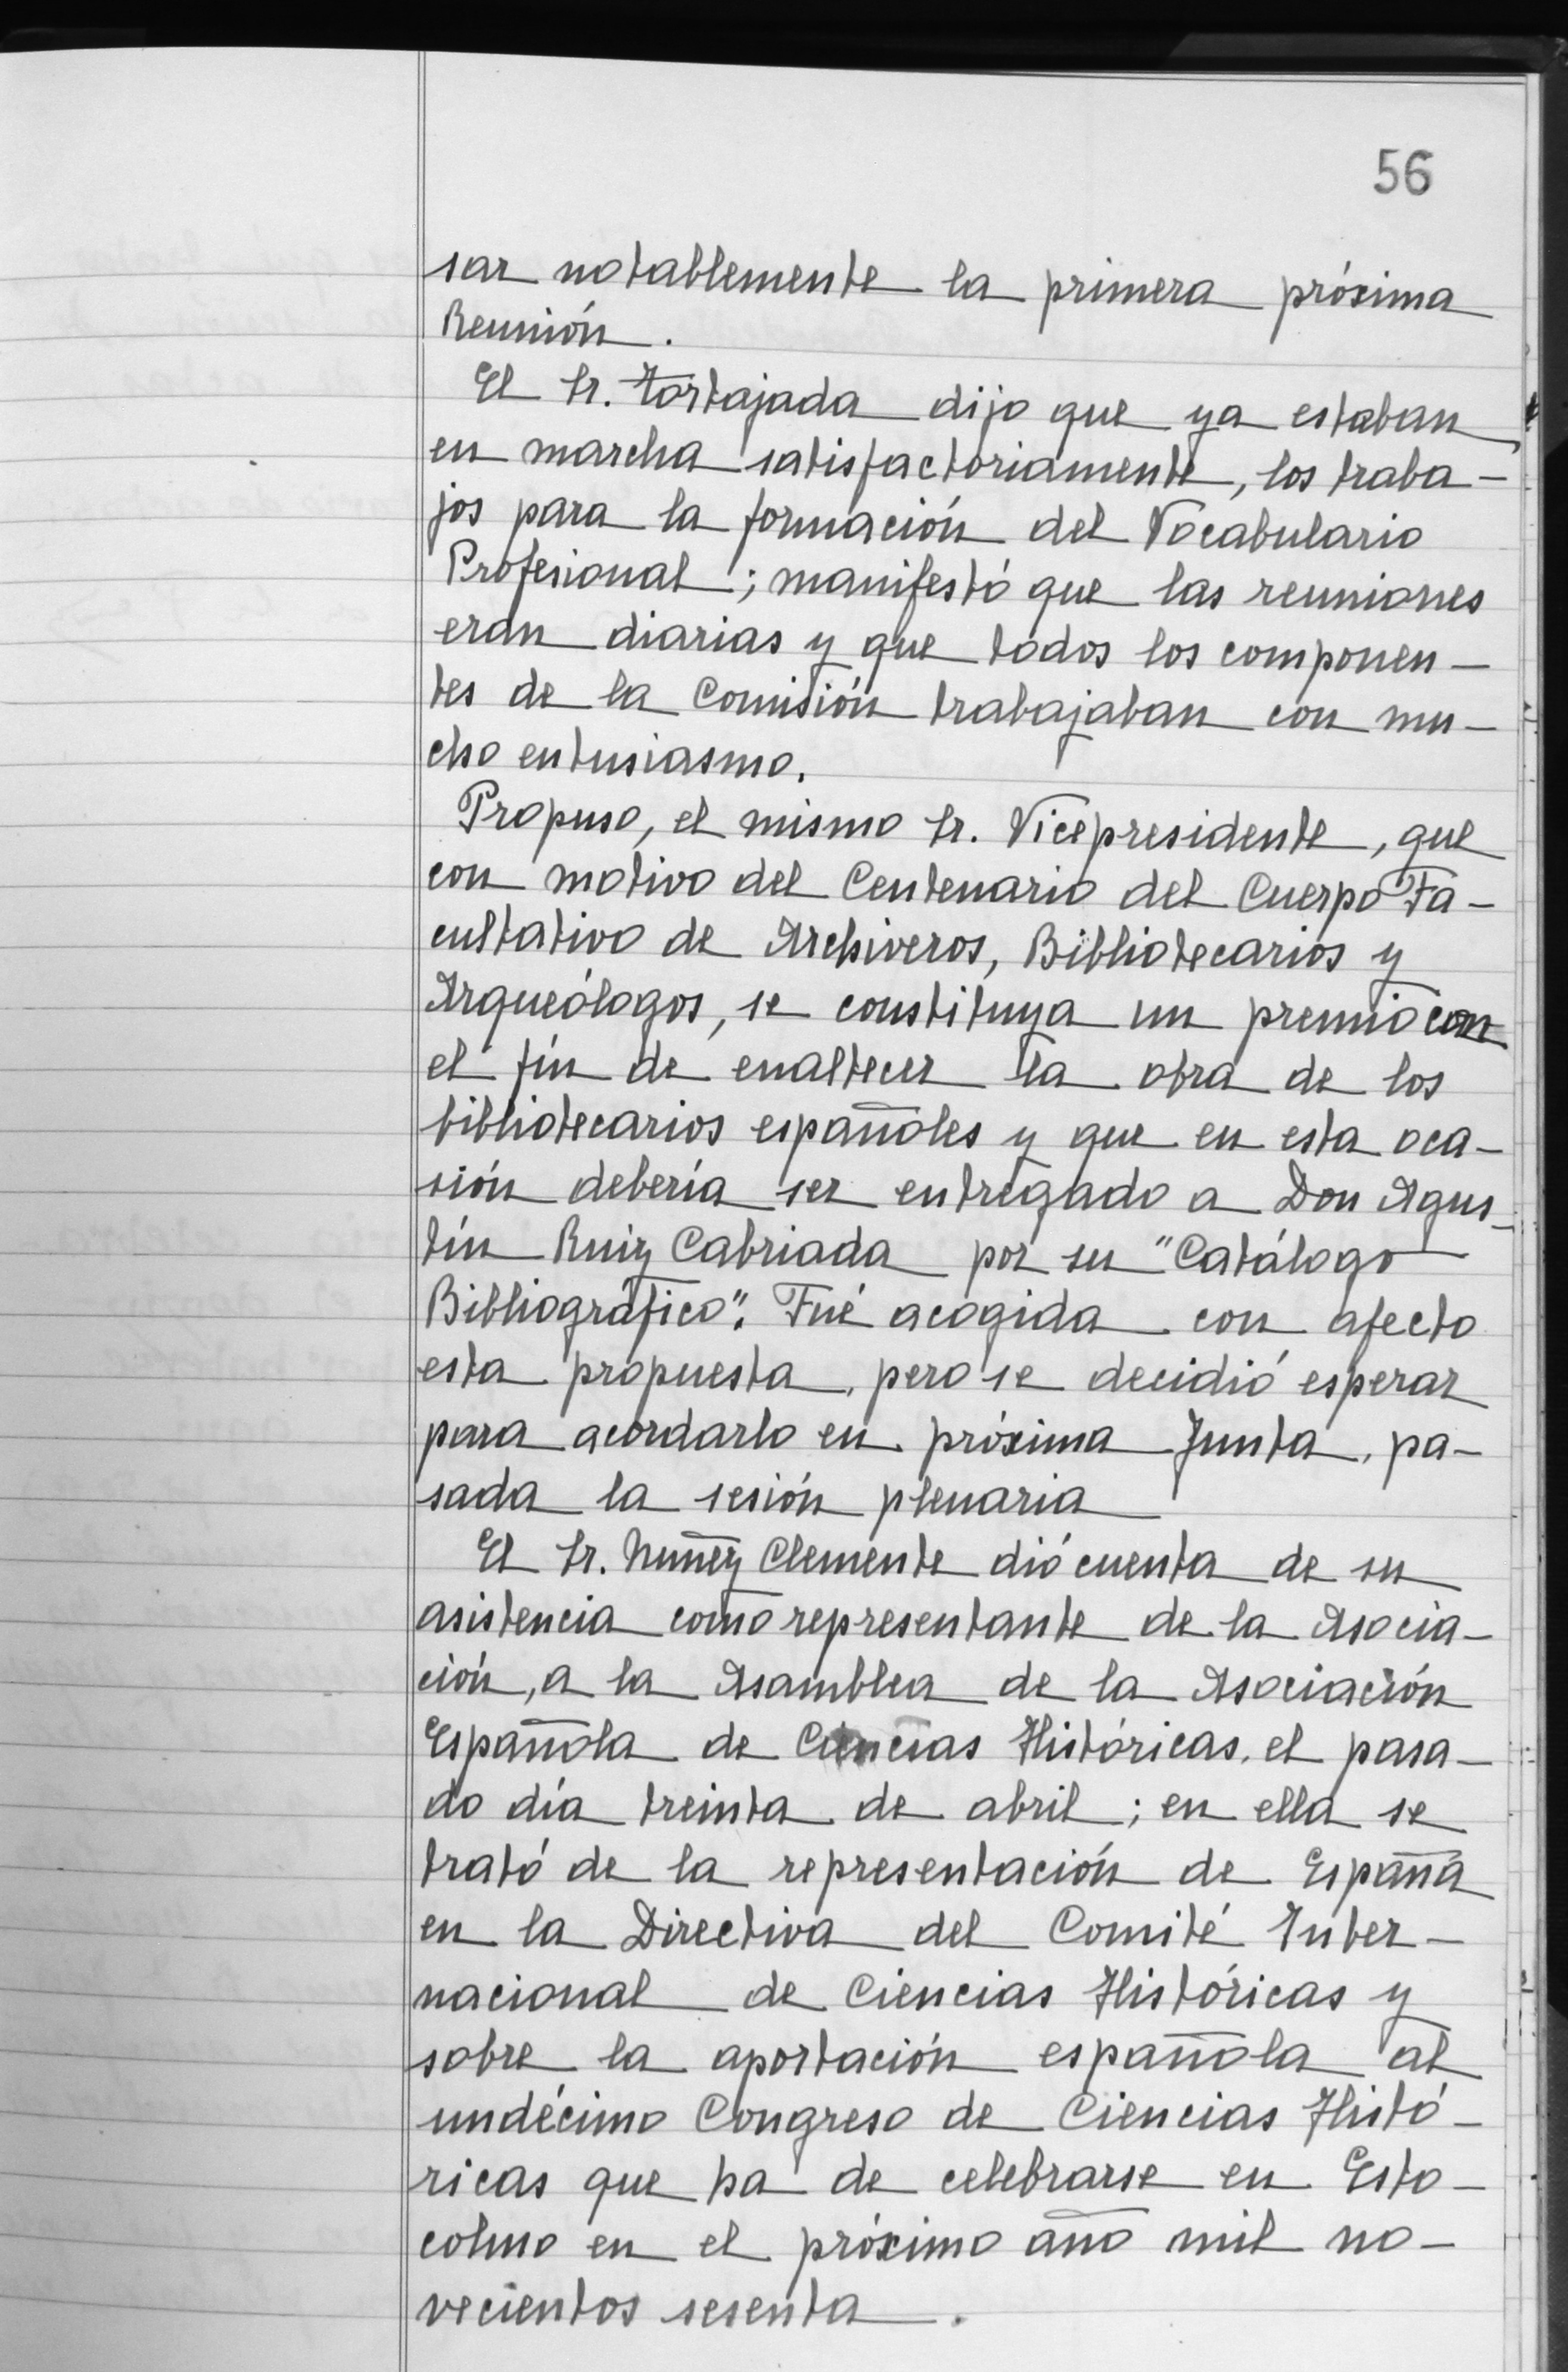 56
sar notablemente la primera próxima
Reunión.
El Sr. Tortajada dijo que ya estaban
en marcha satisfactoriamente, los traba-
jos para la formación del Vocabulario
Profesional; manifestó que las reuniones
eran diarias y que todos los componen-
tes de la Comisión trabajaban con mu-
cho entusiasmo.
Propuso, el mismo Sr. Vicepresidente, que
con motivo del Centenario del Cuerpo Fa-
cultativo de Archiveros, Bibliotecarios y
Arqueólogos, se constituya un premio con
el fín de enaltecer la obra de los
bibliotecarios españoles y que en esta oca-
sión debería ser entregado a Don Agus-
tín Ruiz Cabriada por su "Catálogo
Bibliográfico". Fué acogida con afecto
esta propuesta, pero se decidió esperar
para acordarlo en próxima Junta, pa-
sada la sesión plenaria
El Sr. Nuñez Clemente dió cuenta de su
asistencia como representante de la Asocia-
ción, a la Asamblea de la Asociación
Española de Ciencias Históricas, el pasa-
do día treinta de abril; en ella se
trató de la representación de España
en la Directiva del Comité Inter-
nacional de Ciencias Históricas y
sobre la aportación española al
undécimo Congreso de Ciencias Histó-
ricas que ha de celebrarse en Esto-
colmo en el próximo año mil no-
vecientos sesenta.